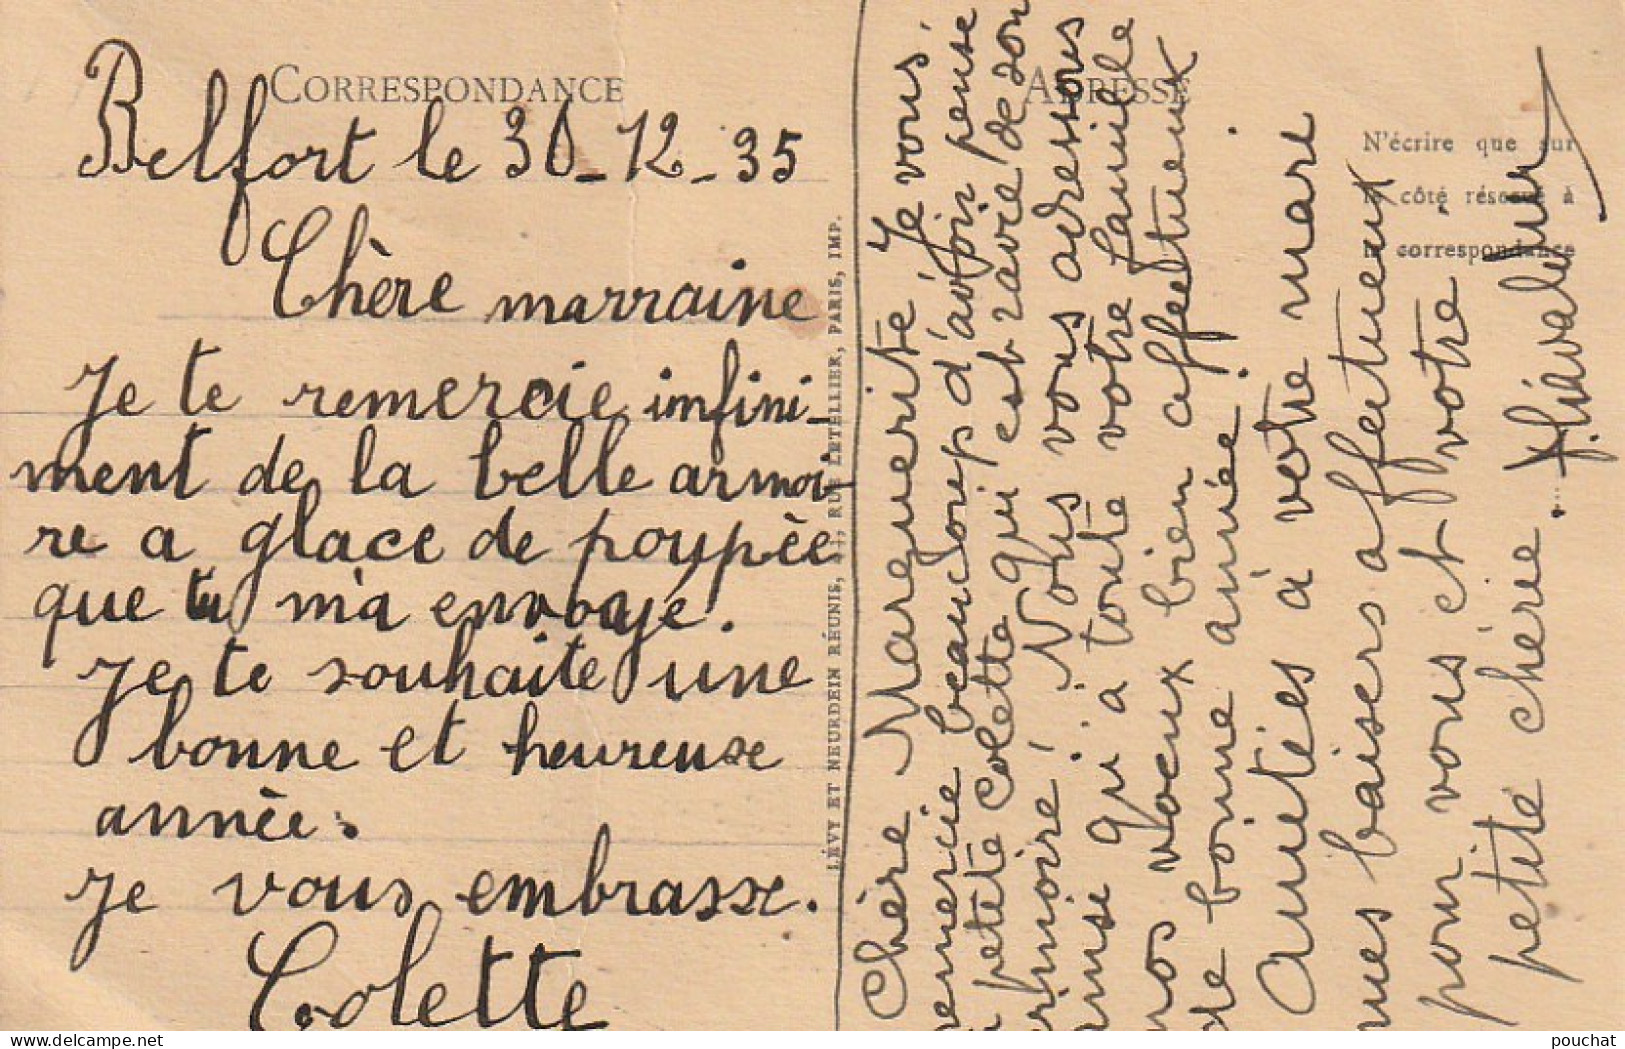 CORRESPONDANCE
Belfort le 30_12_35
Chère marraine
Je te remercie infini_
ment de la belle armoi_
re a glace de poupée
que tu m'a envoyé.
Je te souhaite une
bonne et heureuse
année.
Je vous embrasse.
Colette
LÉVY ET NEURDEIN RÉUNIS, RUE LETELLIER, PARIS, IMP.
ADRESSE
N'écrire que sur
le côté réservé à
la correspondance
Chère Marguerite Je vous
remercie beaucoup d'avoir pensé
petite Colette qui est ravie de son
armoire! Nous vous adressons
ainsi qu'à toute votre famille
nos voeux bien affectueux
de bonne année.
Amitiés à votre mare
mes baisers affectueux
pour vous et votre
petite chérie
pouchat